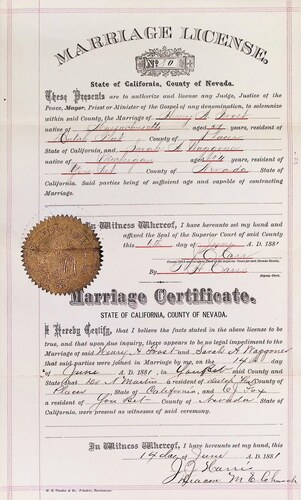 MARRIAGE LICENSE.
No. 0
State of California, County of Nevada.
These Presents are to authorize and license any Judge, Justice of the
Peace, Mayor, Priest or Minister of the Gospel of any denomination, to solemnize
within said County, the Marriage of Henry A Frost
native of Massachusetts aged years, resident of
Dutch Flat County of Placer
State of California, and Sarah A Waggoner
native of Michigan aged years, resident of
You Bet County of Nevada
State of California. Said parties being of sufficient age and capable of contracting
Marriage.
In Witness Whereof, I have hereunto set my hand and
affixed the Seal of the Superior Court of said County
this day of June A. D. 1881
By
Deputy Clerk
Marriage Certificate.
STATE OF CALIFORNIA, COUNTY OF NEVADA.
I Hereby Certify, that I believe the facts stated in the above license to be
true, and that upon due inquiry, there appears to be no legal impediment to the
Marriage of said Henry A Frost and Sarah A Waggoner
that said parties were joined in Marriage by me, on the 14th day
of June A. D. 1881 in You Bet said County and
State that N Martin a resident of Dutch Flat County of
Placer State of California, and Fox
a resident of You Bet County of Nevada State of
California, were present as witnesses of said ceremony.
In Witness Whereof, I have hereunto set my hand, this
14 day of June A. D. 1881
J. Harris
Deacon M. E. Church